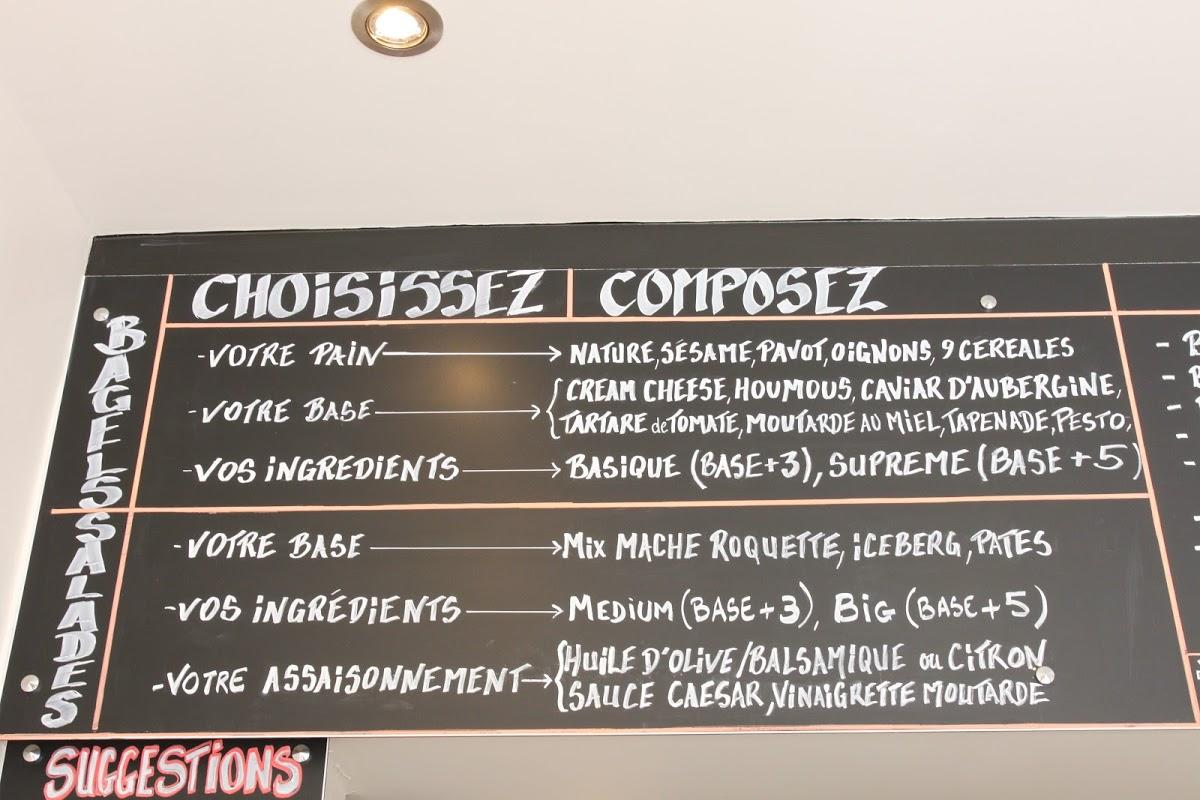 CHOISISSEZ COMPOSEZ
BAGELS
-VOTRE PAIN → NATURE, SÉSAME, PAVOT, OIGNONS, 9 CEREALES
-VOTRE BASE → { CREAM CHEESE, HOUMOUS, CAVIAR D'AUBERGINE,
TARTARE de TOMATE, MOUTARDE AU MIEL, TAPENADE, PESTO,
-VOS INGREDIENTS → BASIQUE (BASE+3), SUPREME (BASE +5)
SALADES
-VOTRE BASE → MIX MACHE ROQUETTE, ICEBERG, PATES
-VOS INGRÉDIENTS → MEDIUM (BASE+3), BIG (BASE+5)
-VOTRE ASSAISONNEMENT → { HUILE D'OLIVE/BALSAMIQUE ou CITRON
SAUCE CAESAR, VINAIGRETTE MOUTARDE
SUGGESTIONS